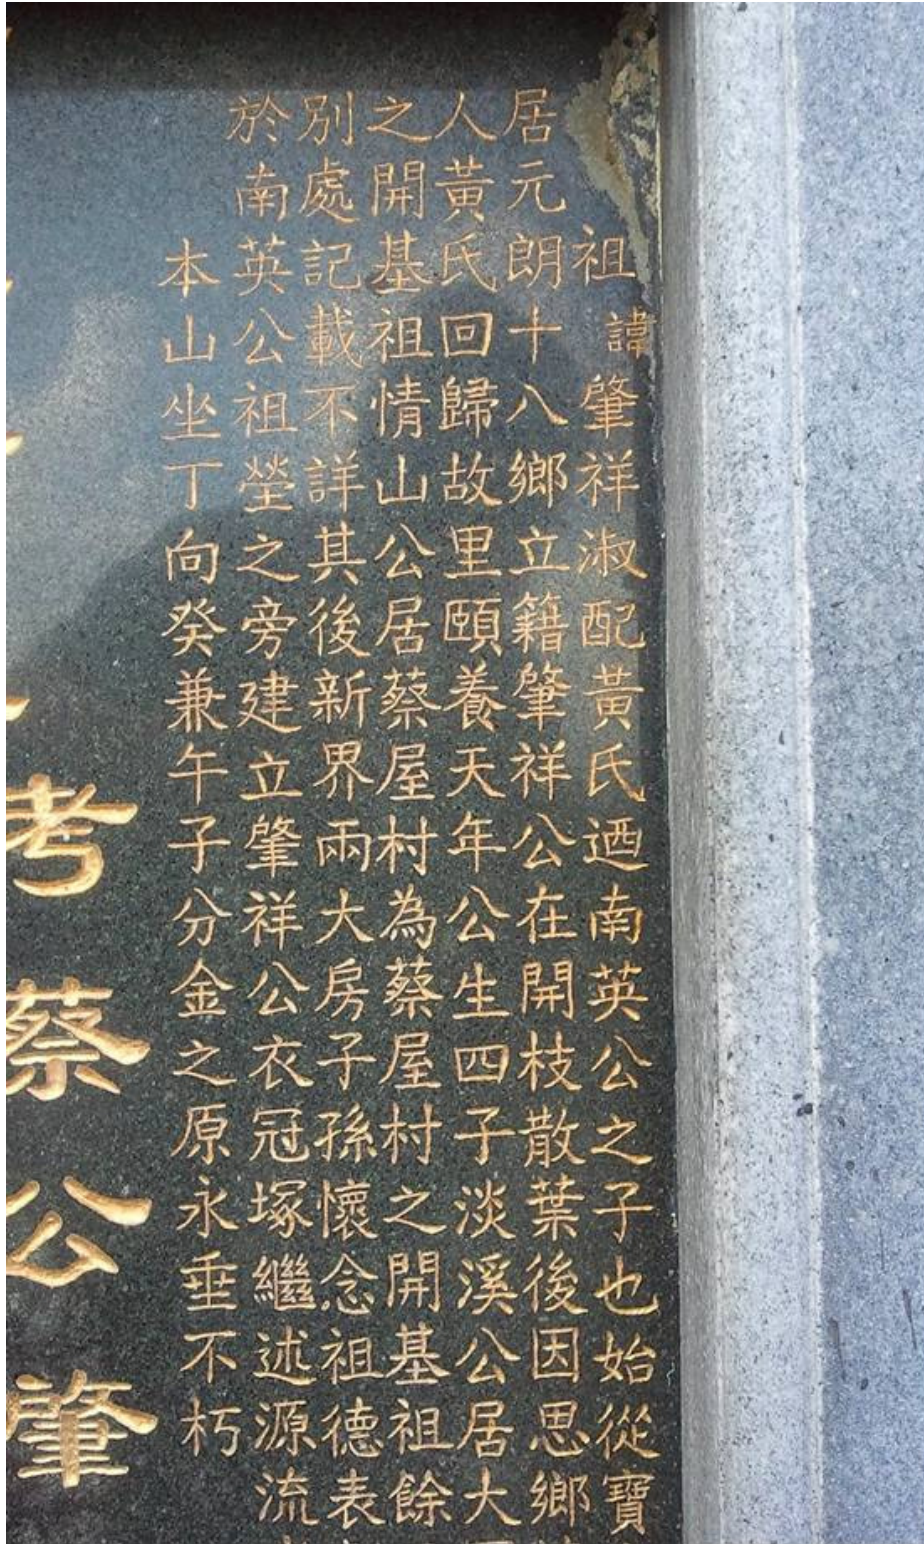 祖諱肇祥淑配黃氏迺南英公之子也始從寶
居元朗十八鄉立籍肇祥公在開枝散葉後因思鄉
人黃氏回歸故里頤養天年公生四子淡溪公居大
之開基祖情山公居蔡屋村為蔡屋村之開基祖餘
別處記載不詳其後新界兩大房子孫懷念祖德表
於南英公祖塋之旁建立肇祥公衣冠塚繼述源流
本山坐丁向癸兼午子分金之原永垂不朽
考蔡公肇